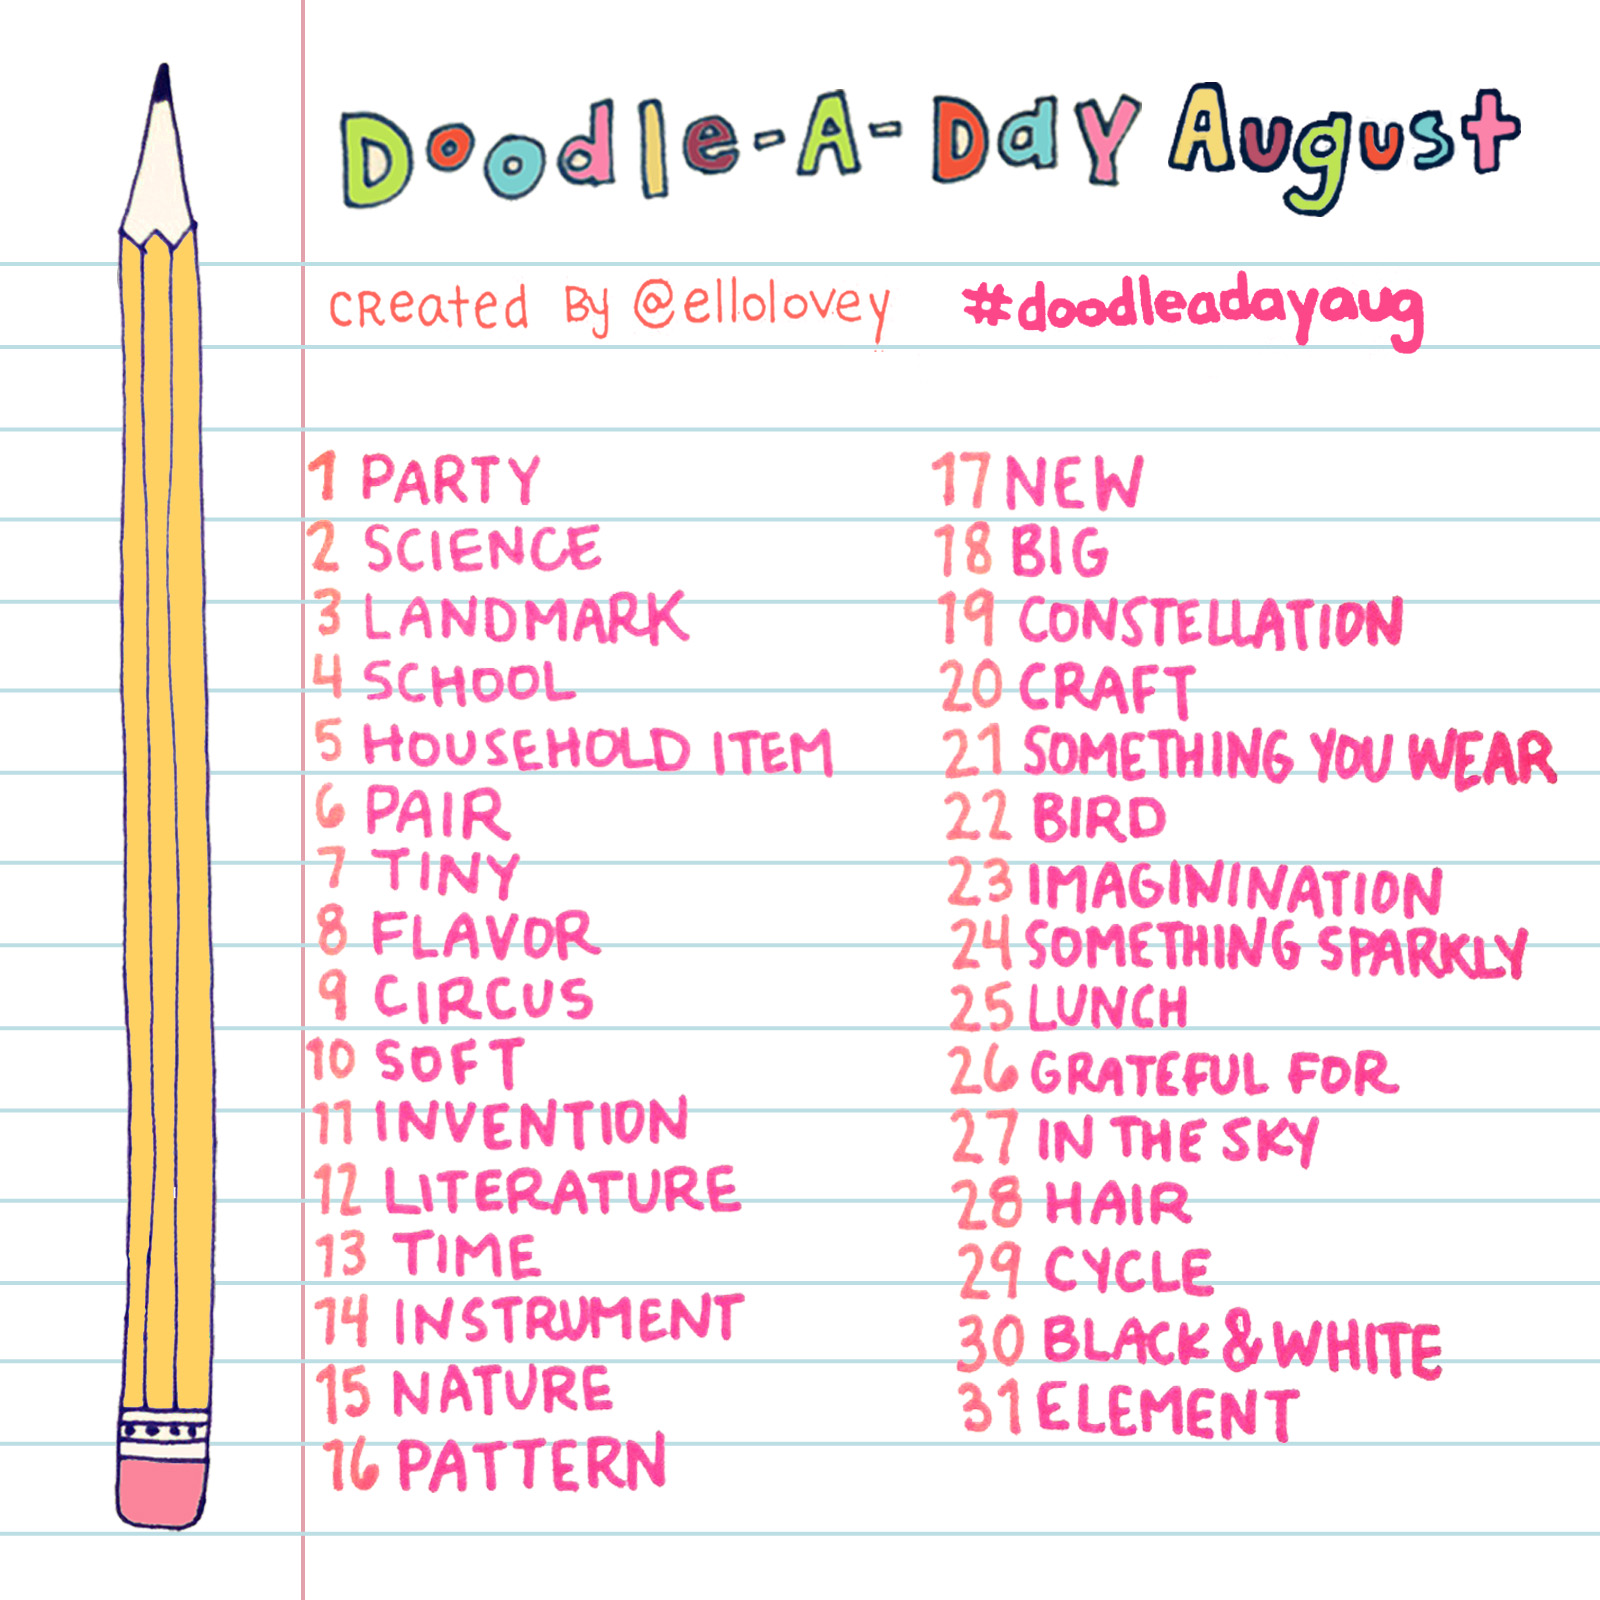 Doodle-A-Day August
created By @ellolovey #doodleadayaug
1 PARTY
2 SCIENCE
3 LANDMARK
4 SCHOOL
5 HOUSEHOLD ITEM
6 PAIR
7 TINY
8 FLAVOR
9 CIRCUS
10 SOFT
11 INVENTION
12 LITERATURE
13 TIME
14 INSTRUMENT
15 NATURE
16 PATTERN
17 NEW
18 BIG
19 CONSTELLATION
20 CRAFT
21 SOMETHING YOU WEAR
22 BIRD
23 IMAGININATION
24 SOMETHING SPARKLY
25 LUNCH
26 GRATEFUL FOR
27 IN THE SKY
28 HAIR
29 CYCLE
30 BLACK & WHITE
31 ELEMENT